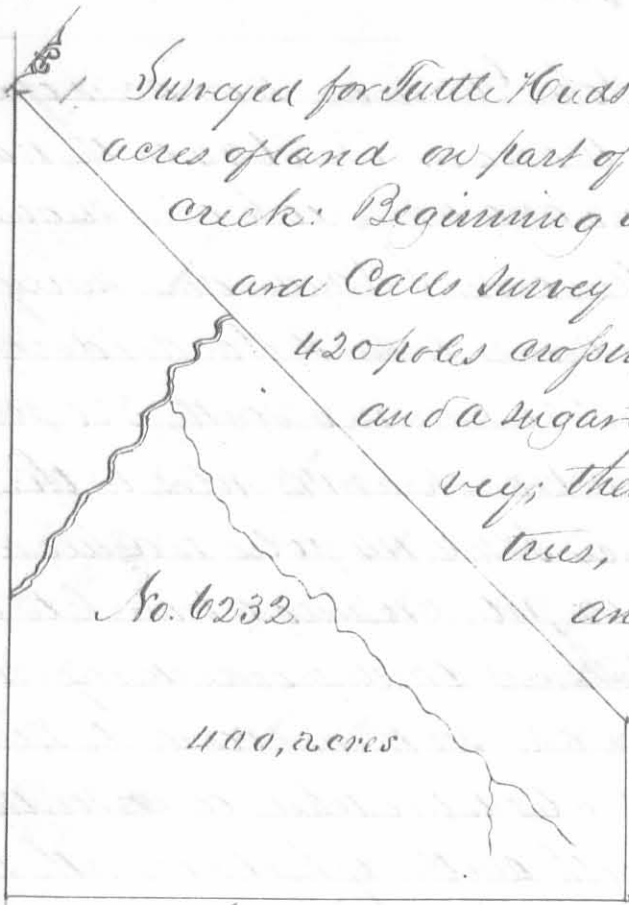 Surveyed for Tuttle Huds
acres of land on part of
creek: Beginning
and Calls survey
420 poles crossin
and a sugar
vey; the
trees,
an
No. 6232
400, acres